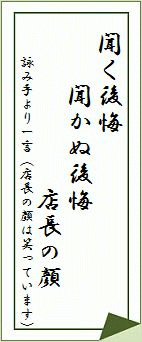 聞く後悔
聞かぬ後悔
店長の顔
詠み手より一言（店長の顔は笑っています）